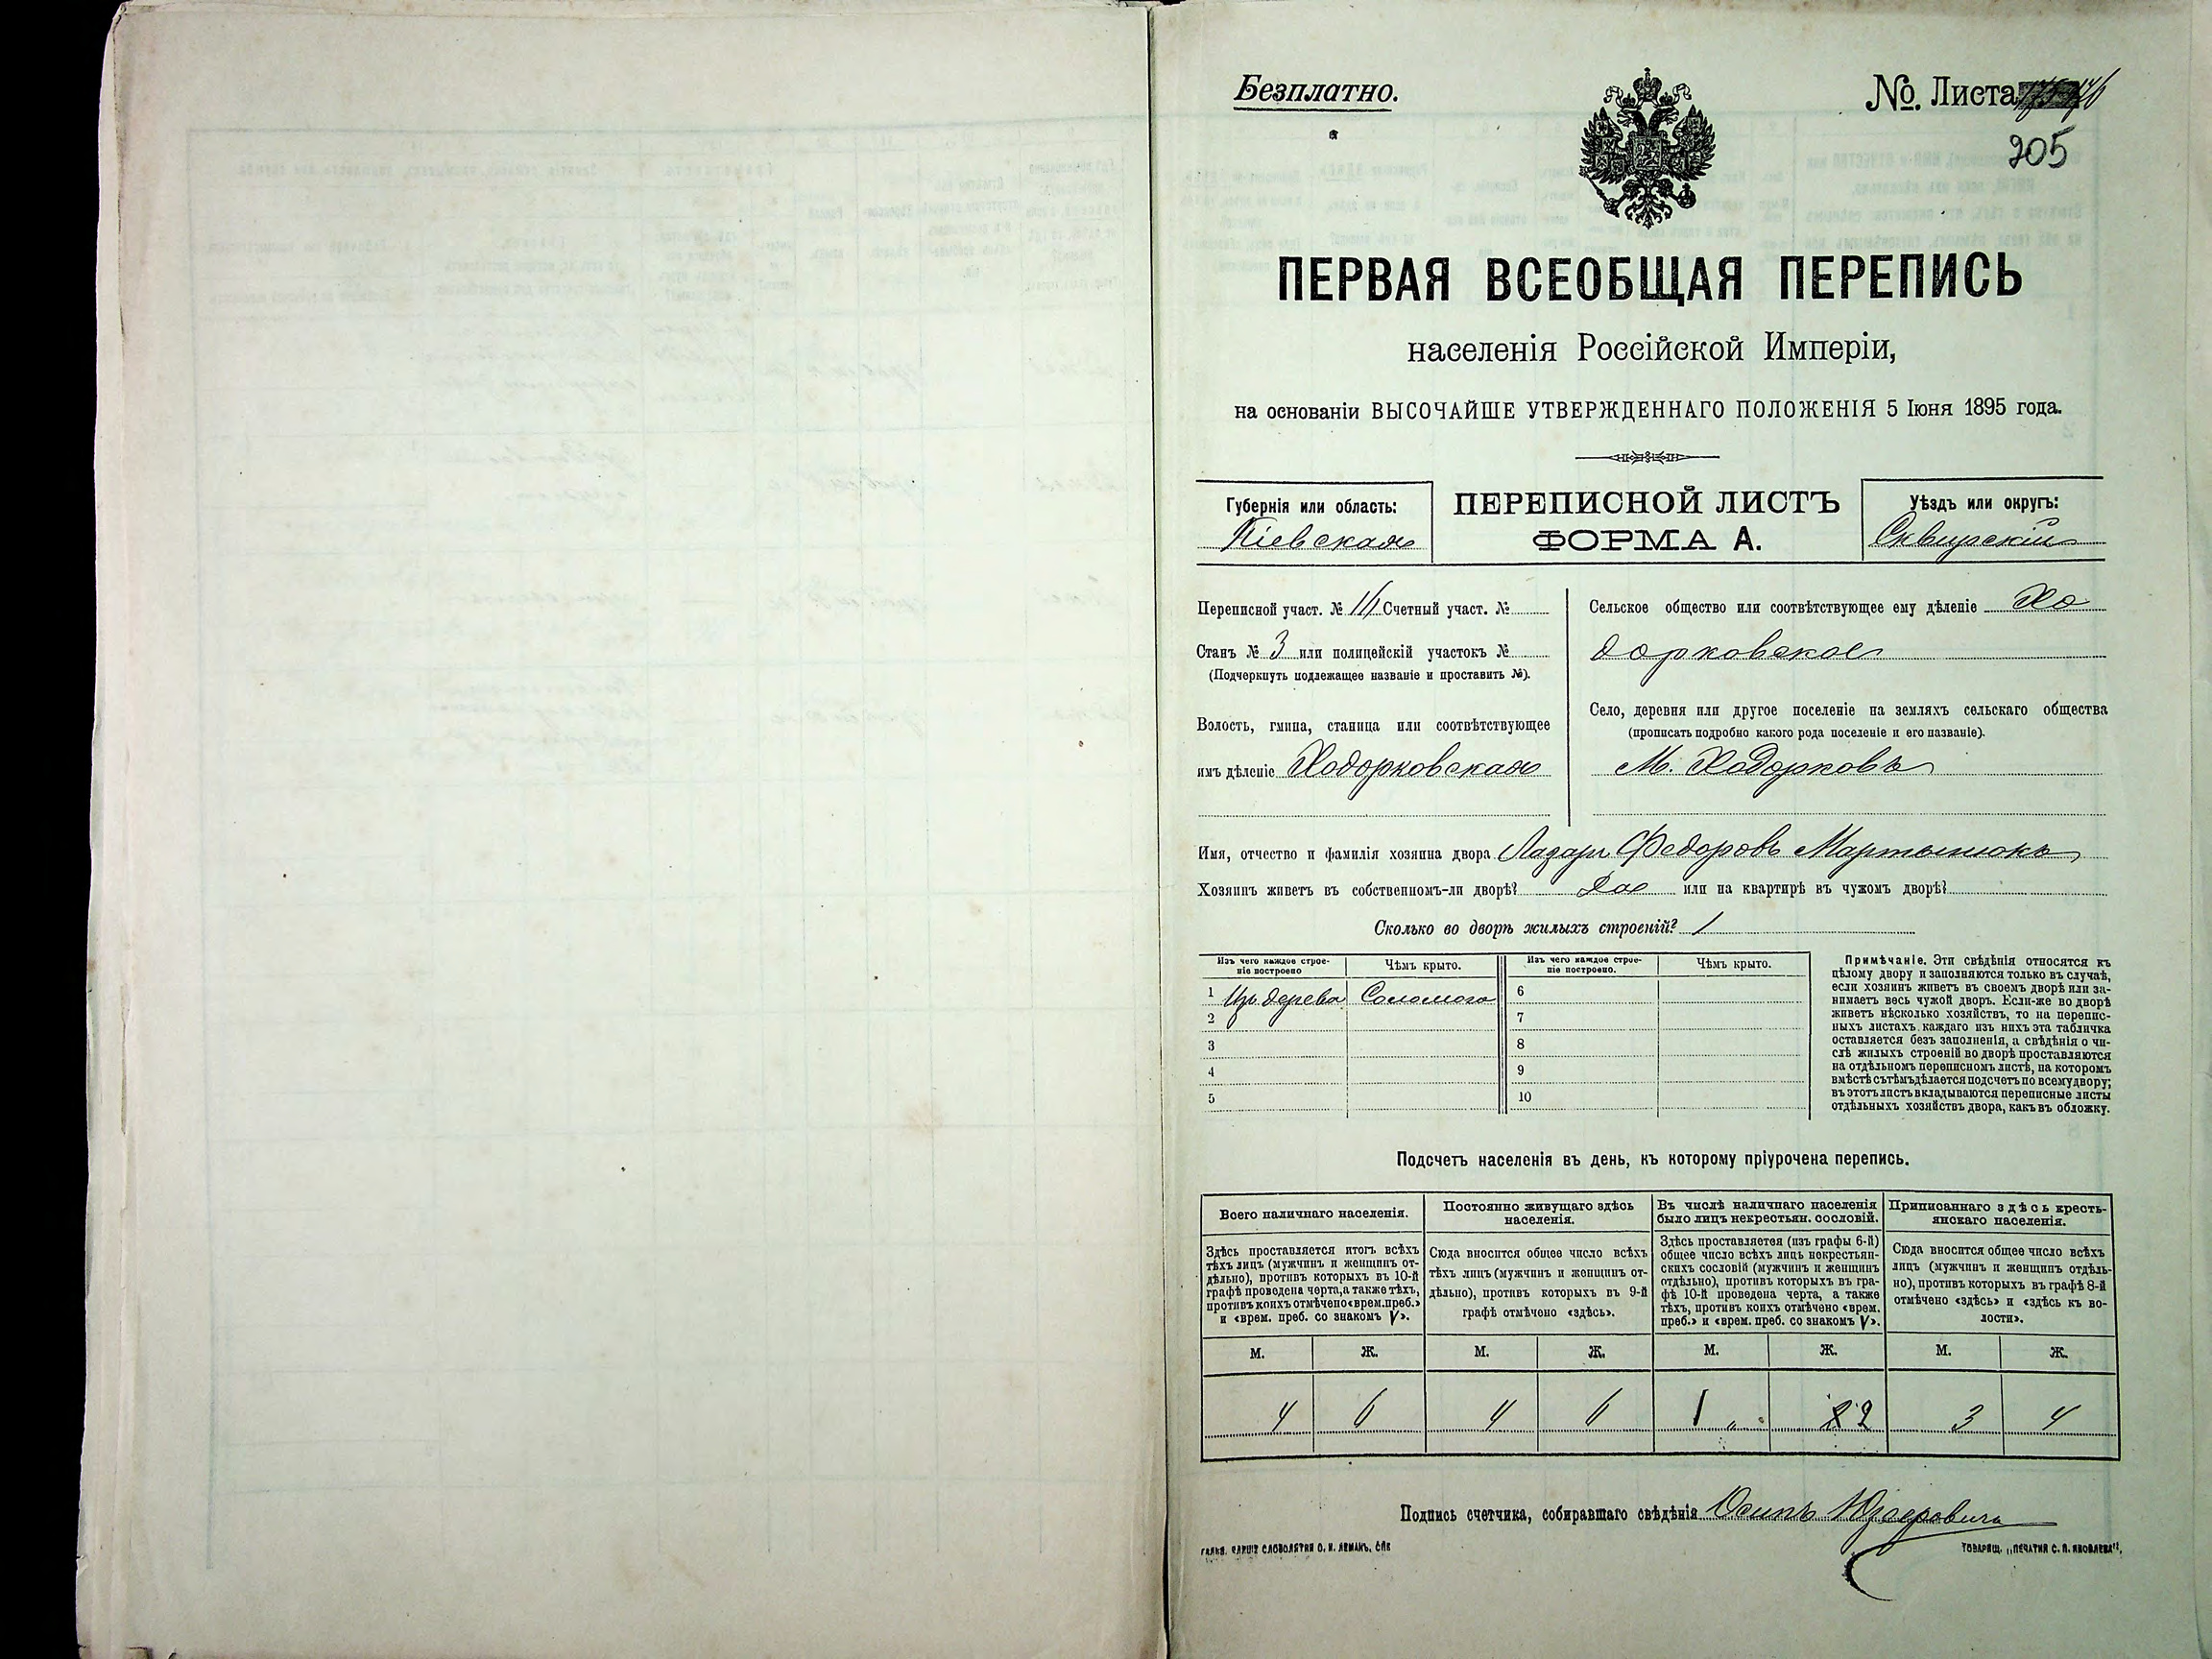 Безплатно.
№. Листа
205
ПЕРВАЯ ВСЕОБЩАЯ ПЕРЕПИСЬ
населенія Россійской Имперіи,
на основаніи ВЫСОЧАЙШЕ УТВЕРЖДЕННАГО ПОЛОЖЕНІЯ 5 Іюня 1895 года.
Губернія или область:
Кіевская
ПЕРЕПИСНОЙ ЛИСТЪ
ФОРМА А.
Уѣздъ или округъ:
Сквирскій
Переписной участ. № 14 Счетный участ. №
Станъ № 3 или полицейскій участокъ №
(Подчеркнуть подлежащее названіе и проставить №).
Волость, гмина, станица или соотвѣтствующее
имъ дѣленіе Ходорковская
Сельское общество или соотвѣтствующее ему дѣленіе Хо
дорковское
Село, деревня или другое поселеніе на земляхъ сельскаго общества
(прописать подробно какого рода поселеніе и его названіе).
М. Ходорковъ
Имя, отчество и фамилія хозяина двора Лазарь Федоровъ Мартынюкъ
Хозяинъ живетъ въ собственномъ-ли дворѣ? Да или на квартирѣ въ чужомъ дворѣ?
Сколько во дворѣ жилыхъ строеній? 1
Изъ чего каждое строе-
ніе построено
Чѣмъ крыто.
Изъ чего каждое строе-
ніе построено.
Чѣмъ крыто.
1 Изъ дерева Соломою 6
2 7
3 8
4 9
5 10
Примѣчаніе. Эти свѣдѣнія относятся къ
цѣлому двору и заполняются только въ случаѣ,
если хозяинъ живетъ въ своемъ дворѣ или за-
нимаетъ весь чужой дворъ. Если-же во дворѣ
живетъ нѣсколько хозяйствъ, то на перепис-
ныхъ листахъ каждаго изъ нихъ эта табличка
оставляется безъ заполненія, а свѣдѣнія о чи-
слѣ жилыхъ строеній во дворѣ проставляются
на отдѣльномъ переписномъ листѣ, на которомъ
вмѣстѣ съ тѣмъ дѣлается подсчетъ по всему двору;
въ этотъ листъ вкладываются переписные листы
отдѣльныхъ хозяйствъ двора, какъ въ обложку.
Подсчетъ населенія въ день, къ которому пріурочена перепись.
Всего наличнаго населенія.
Здѣсь проставляется итогъ всѣхъ
тѣхъ лицъ (мужчинъ и женщинъ от-
дѣльно), противъ которыхъ въ 10-й
графѣ проведена черта, а также тѣхъ,
противъ коихъ отмѣчено «врем. преб.»
и «врем. преб. со знакомъ V».
Постоянно живущаго здѣсь
населенія.
Сюда вносится общее число всѣхъ
тѣхъ лицъ (мужчинъ и женщинъ от-
дѣльно), противъ которыхъ въ 9-й
графѣ отмѣчено «здѣсь».
Въ числѣ наличнаго населенія
было лицъ некрестьян. сословій.
Здѣсь проставляется (изъ графы 6-й)
общее число всѣхъ лицъ некрестьян-
скихъ сословій (мужчинъ и женщинъ
отдѣльно), противъ которыхъ въ гра-
фѣ 10-й проведена черта, а также
тѣхъ, противъ коихъ отмѣчено «врем.
преб.» и «врем. преб. со знакомъ V».
Приписаннаго здѣсь кресть-
янскаго населенія.
Сюда вносится общее число всѣхъ
лицъ (мужчинъ и женщинъ отдѣль-
но), противъ которыхъ въ графѣ 8-й
отмѣчено «здѣсь» и «здѣсь къ во-
лости».
М. Ж. М. Ж. М. Ж. М. Ж.
4 6 4 6 1 2 3 4
Подпись счетчика, собиравшаго свѣдѣнія Осипъ
ТОВАРИЩ. „ПЕЧАТНЯ С. П. ЯКОВЛЕВА".